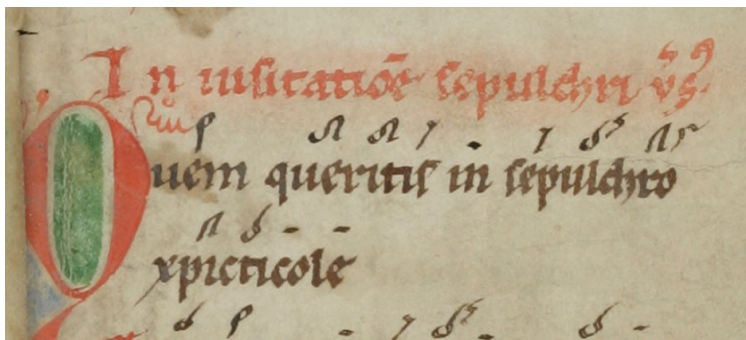 In uisitatiōe sepulchri v̄s.
Quem queritis in sepulchro
xpicticole